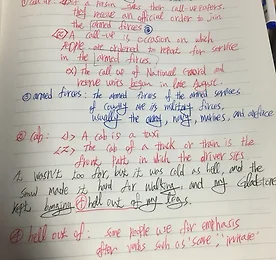 call up: a person gets their call-up papers,
they receive an official order to join
the armed forces
A call-up is occasion on which
people are ordered to report for service
in the armed forces.
The call up of National Guard and
reserve units began in late August.
armed forces: the armed forces of the armed services
of country are its military forces,
usually the army, navy, marines, and airforce
cab: <1> A cab is a taxi
<2> The cab of a truck or than is the
front part in which the driver sites
it wasn't too far, but it was cold as hell, and the
snow made it hard for walking and my
kept banging hell out of my legs.
hell out of: some people use for emphasis
after verbs such as 'scare', 'irritate'